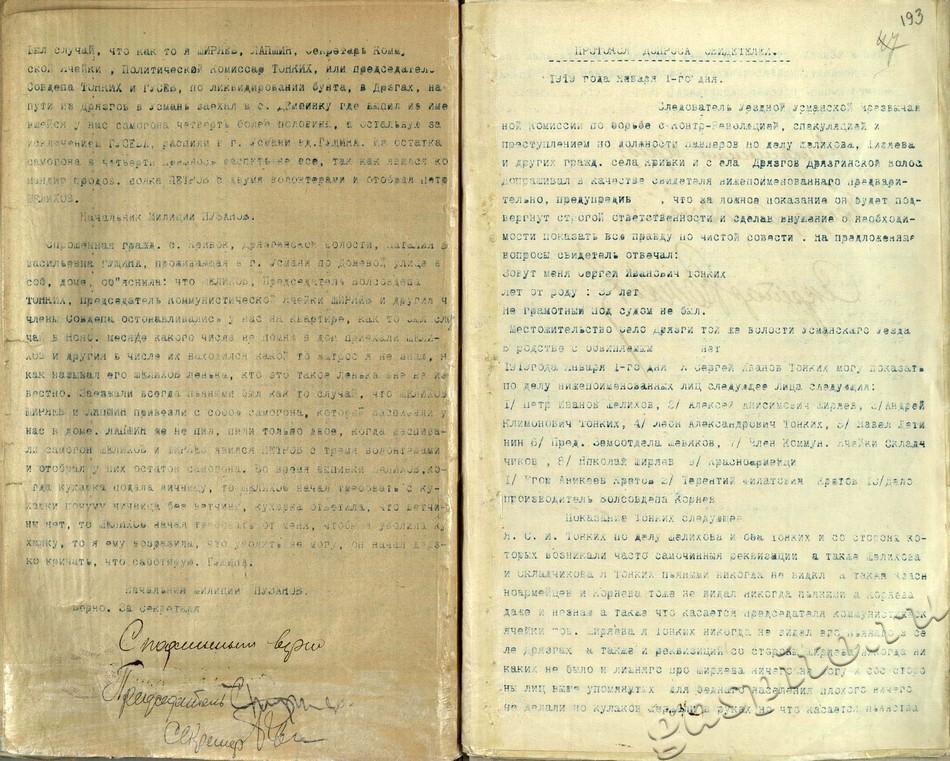 Был случай, что как то я ШИРЯЕВ, ЛАПШИН, Секретарь Комму
ской ячейки , Политической Комиссар ТОНКИХ, или председатель
Совдепа ТОНКИХ и ГУСЕВ, по ликвидировании бунта, в Дрязгах, на
пути из Дрязгов в Усмань заехал в с. Демшинку где выпил из име
вшейся у нас самогона четверть более половины, а остальную за
исключением ГУСЕВА, распили в г. Усмани
самогона в четверти пришлось распить не все, так как явился ко
ПЕТРОВ с двумя волонтерами и отобрал
ШЕЛИХОВ.
Начальник Милиции ПУЗАНОВ.
Спрошенная гражд. с. Кривок, Дрязгинской волости, Наталия В
васильевна ГУЩИНА, проживающая в г. Усмани по Доневой улице в
соб, доме, об"яснила: что ШЕЛИХОВ, Председатель волсовдепа
ТОНКИХ, председатель коммунистической ячейки ШИРЯЕВ и другия ч
члены Совдепа останавливались у нас на квартире, как то был слу
чай в Нояб. месяце какого числа не помню в дом приехали ШЕЛИ-
ХОВ и другия в числе их находился какой то матрос я не знаю, н
как называл его ШЕЛИХОВ Ленька, кто это такое Ленька мне не из
вестно. Заезжали всегда пьяными был как то случай, что ШЕЛИХОВ
ШИРЯЕВ и ЛАПШИН привезли с собою самогона, который распивали у
нас в доме. ЛАПШИН же не пил, пили только двое, когда распива-
ли самогон ШЕЛИХОВ и ШИРЯЕВ явился ПЕТРОВ с тремя волонтерами
и отобрал у них остаток самогона. Во время выпивки ШЕЛИХОВ,ко-
гда кухарка подала яичницу, то ШЕЛИХОВ начал требовать с ку-
харки почему яичница без ветчины, кухарка ответила, что ветчи-
ны нет, то ШЕЛИХОВ начал требовать от меня, чтобы я уволила ку
харку, то я ему возразила, что уволить не могу, он начал дерз-
ко кричать, что саботирую. Гущина.
Начальник милиции ПУЗАНОВ.
Верно. За секретаря
С подлинным верно
Председатель
Секретар
193
47
ПРОТОКОЛ ДОПРОСА СВИДЕТЕЛЯ.
1919 года января 1-го дня.
Следователь Уездной Усманской Чрезвычай
ной Комиссии по борьбе с контр-Революцией, спекуляцией и
преступлением по должности по делу Шелихова, Ширяева
и других гражд. села Кривки и с ела Дрязгов Дрязгинской волос
допрашивал в качестве свидетеля нижепоименованнаго предвари-
тельно, предупредив , что за ложное показание он будет под-
вергнут строгой ответственности и сделав внушение о необходи-
мости показать все правду по чистой совести . На предложенные
вопросы свидетель отвечал:
Зовут меня Сергей Иванович Тонких
лет от роду : 39 лет
не грамотный под судом не был.
Местожительство Село Дрязги той же волости Усманскаго уезда
В родстве с обвиняемым нет
1919года января 1-го дня Я Сергей Иванов Тонких могу показать
по делу нижепоименованных лиц следующее лица следующия:
1/ Петр Иванов Шелихов, 2/ Алексей Анисимович Ширяев, 3/Андрей
Климонович Тонких, 4/ Леон Александрович Тонких, 5/ Павел Дети
нин 6/ Пред. Земотдела Шевяков, 7/ Член Коммун. Ячейки Складч
чиков , 8/ Николай Ширяев 9/ Красноармейци
1/ Егом Аникеев Крятов 2/ Терентий Филатович Крятов 10/Дело
производитель Волсовдепа Корнев
Показание Тонких следующее
Я. С. И. Тонких по делу Шелихова и оба Тонких и со стороны ко-
торых возникали часто самочинныя реквизиции а также Шелихова
и Складчикова я Тонких пьяными никогда не видел а также красн
ноармейцев и Корнева тоже не видал никогда пьяними а Корнева
даже и незнаю а также что касается председателя коммунистическ
ячейки тов. Ширяева я Тонких никогда не видел его пьяным в се
ле Дрязгах а также и реквизиций со стороны Ширяева никогда ни
каких не было и лишняго про Ширяева ничего не могу и осо сторо
ны лиц выше упомянутых для беднаго населения плохого ничего
не делали но кулаков держали в руках но что касается пьянства